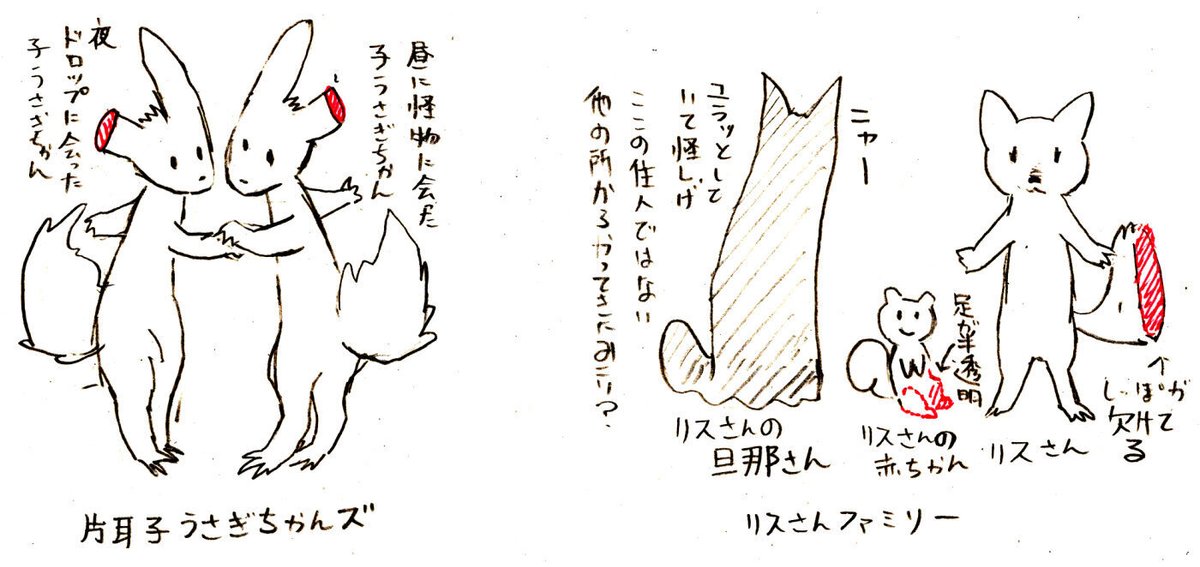 夜
ドロップに会った
子うさぎちゃん
昼に怪物に会った
子うさぎちゃん
片耳子うさぎちゃんズ
ニャー
ユラッとして
いて怪しげ
ここの住人ではない
他の所からやってきたみたい？
リスさんの
旦那さん
足が半透明
リスさんの
赤ちゃん
リスさん
↑
しっぽが
欠けて
る
リスさんファミリー